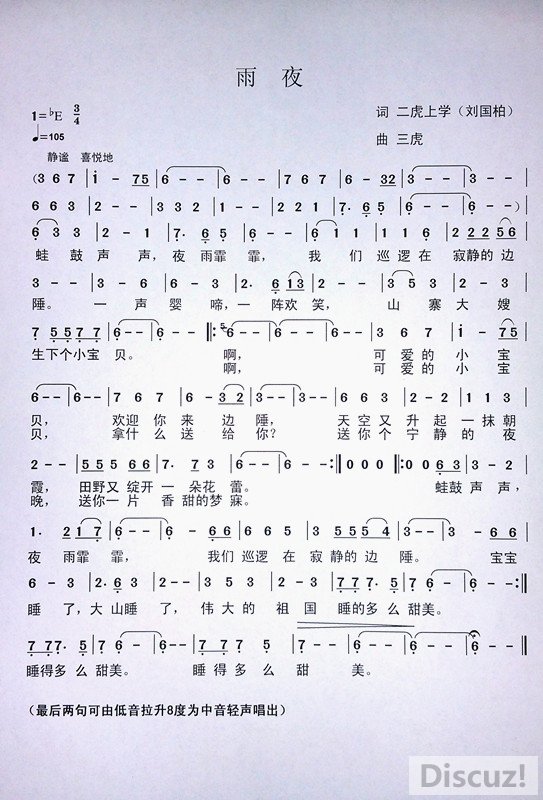 雨 夜
1=♭E 3/4
词 二虎上学（刘国柏）
♩=105
曲 三虎
静谧 喜悦地
(3 6 7 | i - 75 | 6 - - | 6 - - | 7 6 7 | 6 - - | 6 - 32 | 3 - - | 3 - - |
6 6 3 | 2 - - | 3 3 2 | 1 - - | 2 2 1 | 7. 6 5 | 6 - - | 6 - - )
6 3 3 | 2 - 1 | 7. 6 5 | 6 - - | 6 1 1 | 1 1 6 | 2 2 2 5 6
蛙 鼓 声 声，夜 雨霏 霏， 我 们 巡 逻 在 寂静的 边
3 - - | 3 - 6 | 3 - - | 2. 6 1 3 | 2 - - | 3 5 3 | 2 - 3
陲。 一 声 婴 啼，一 阵欢 笑， 山 寨 大 嫂
7 5 5 7 7 | 6 - - | 6 - - ‖: 6 - - | 6 - - | 3 6 7 | i - 75
生下个小宝 贝。 啊， 可 爱 的 小 宝
啊， 可 爱 的 小 宝
6 - - | 6 - - | 7 6 7 | 6 - 32 | 3 - - | 3 - - | 6 6 3 | 2 - 2 | 1 1 2
贝， 欢迎 你 来 边 陲， 天 空 又 升 起 一 抹 朝
贝， 拿什 么 送 给 你？ 送 你 个 宁 静 的 夜
2 - - | 5 5 5 5 6 6 | 7. 6 3 | 6 - - | 6 - - :‖ 0 0 0 | 0 0 0 ‖: 0 0 6 3 | 3 - 2
霞， 田野又 绽开 一 朵花 蕾。 蛙鼓 声 声，
晚， 送你一 片 香 甜的梦 寐。
1. | 2 1 7 | 6 - - | 6 - - | 6 6 6 5 | 3 5 | 3 5 5 4 | 3 - - | 3 - - | 6 6
夜 雨霏 霏， 我们 巡逻 在 寂 静的 边 陲。 宝宝
6 - 3 | 2. 6 3 | 2 - - | 3 5 3 | 2 - 3 | 7 7 7. 5 | 7 6 - | 6 - :‖
睡 了，大 山睡 了， 伟 大 的 祖 国 睡的多 么 甜美。
7 7 7. 5 | 7 6 - | 6 - - | 7 7 7 5 | 7 - - | 6 - - | 6 - - ‖
睡得多 么 甜美。 睡 得多 么 甜 美。
（最后两句可由低音拉升8度为中音轻声唱出）
Discuz!